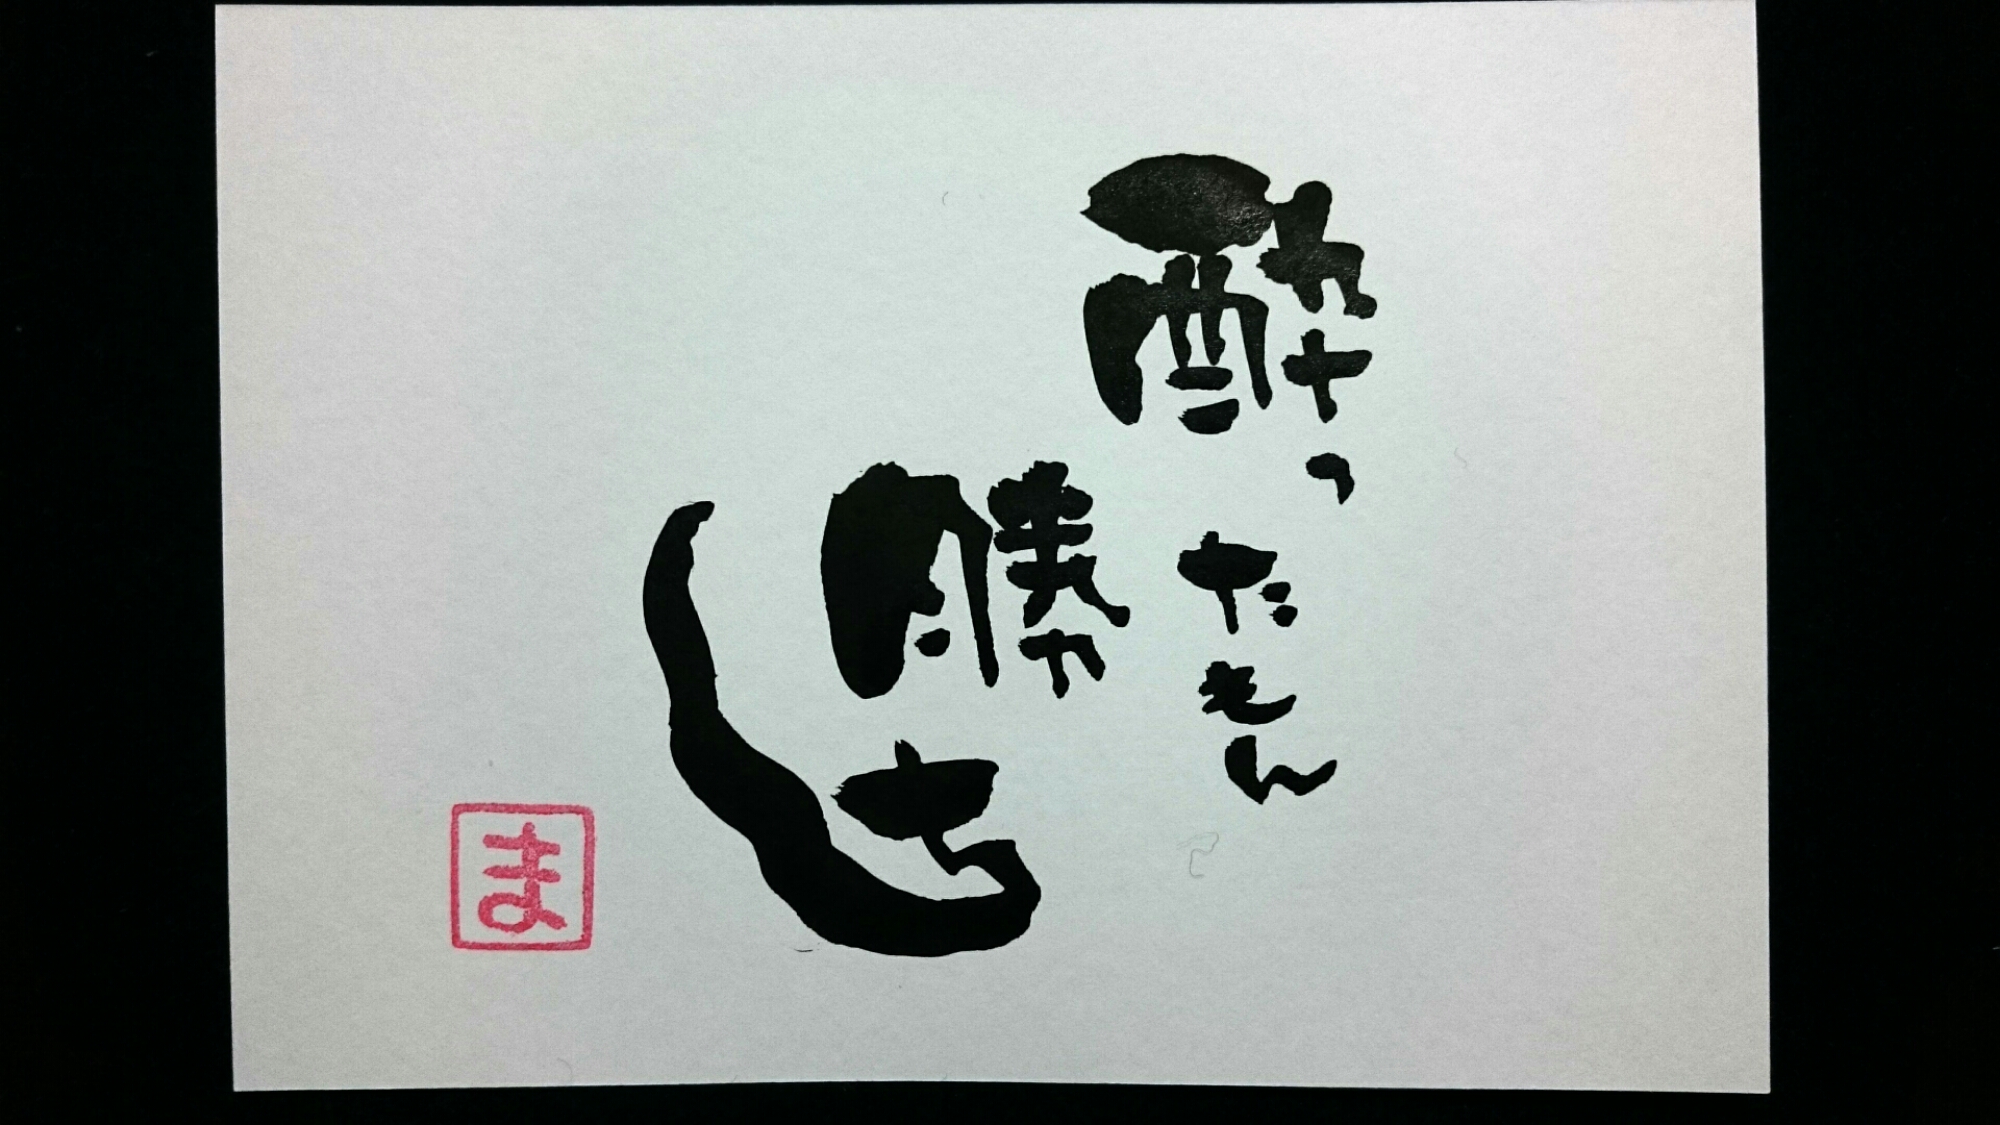 酔っ
だもん
勝
ち
ま